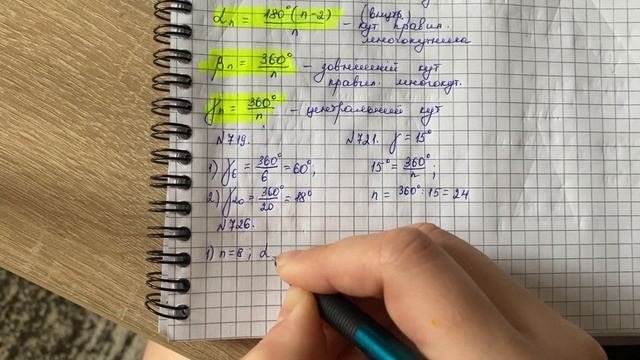 αₙ = 180°(n-2)/n - (внутр.) кут правил. многокутника
βₙ = 360°/n - зовнішній кут правил. многокут.
γₙ = 360°/n - центральний кут
N719.
1) γ₆ = 360°/6 = 60°;
2) γ₂₀ = 360°/20 = 18°
N721. γ = 15°
15° = 360°/n;
n = 360° : 15 = 24
N726.
1) n=8; α